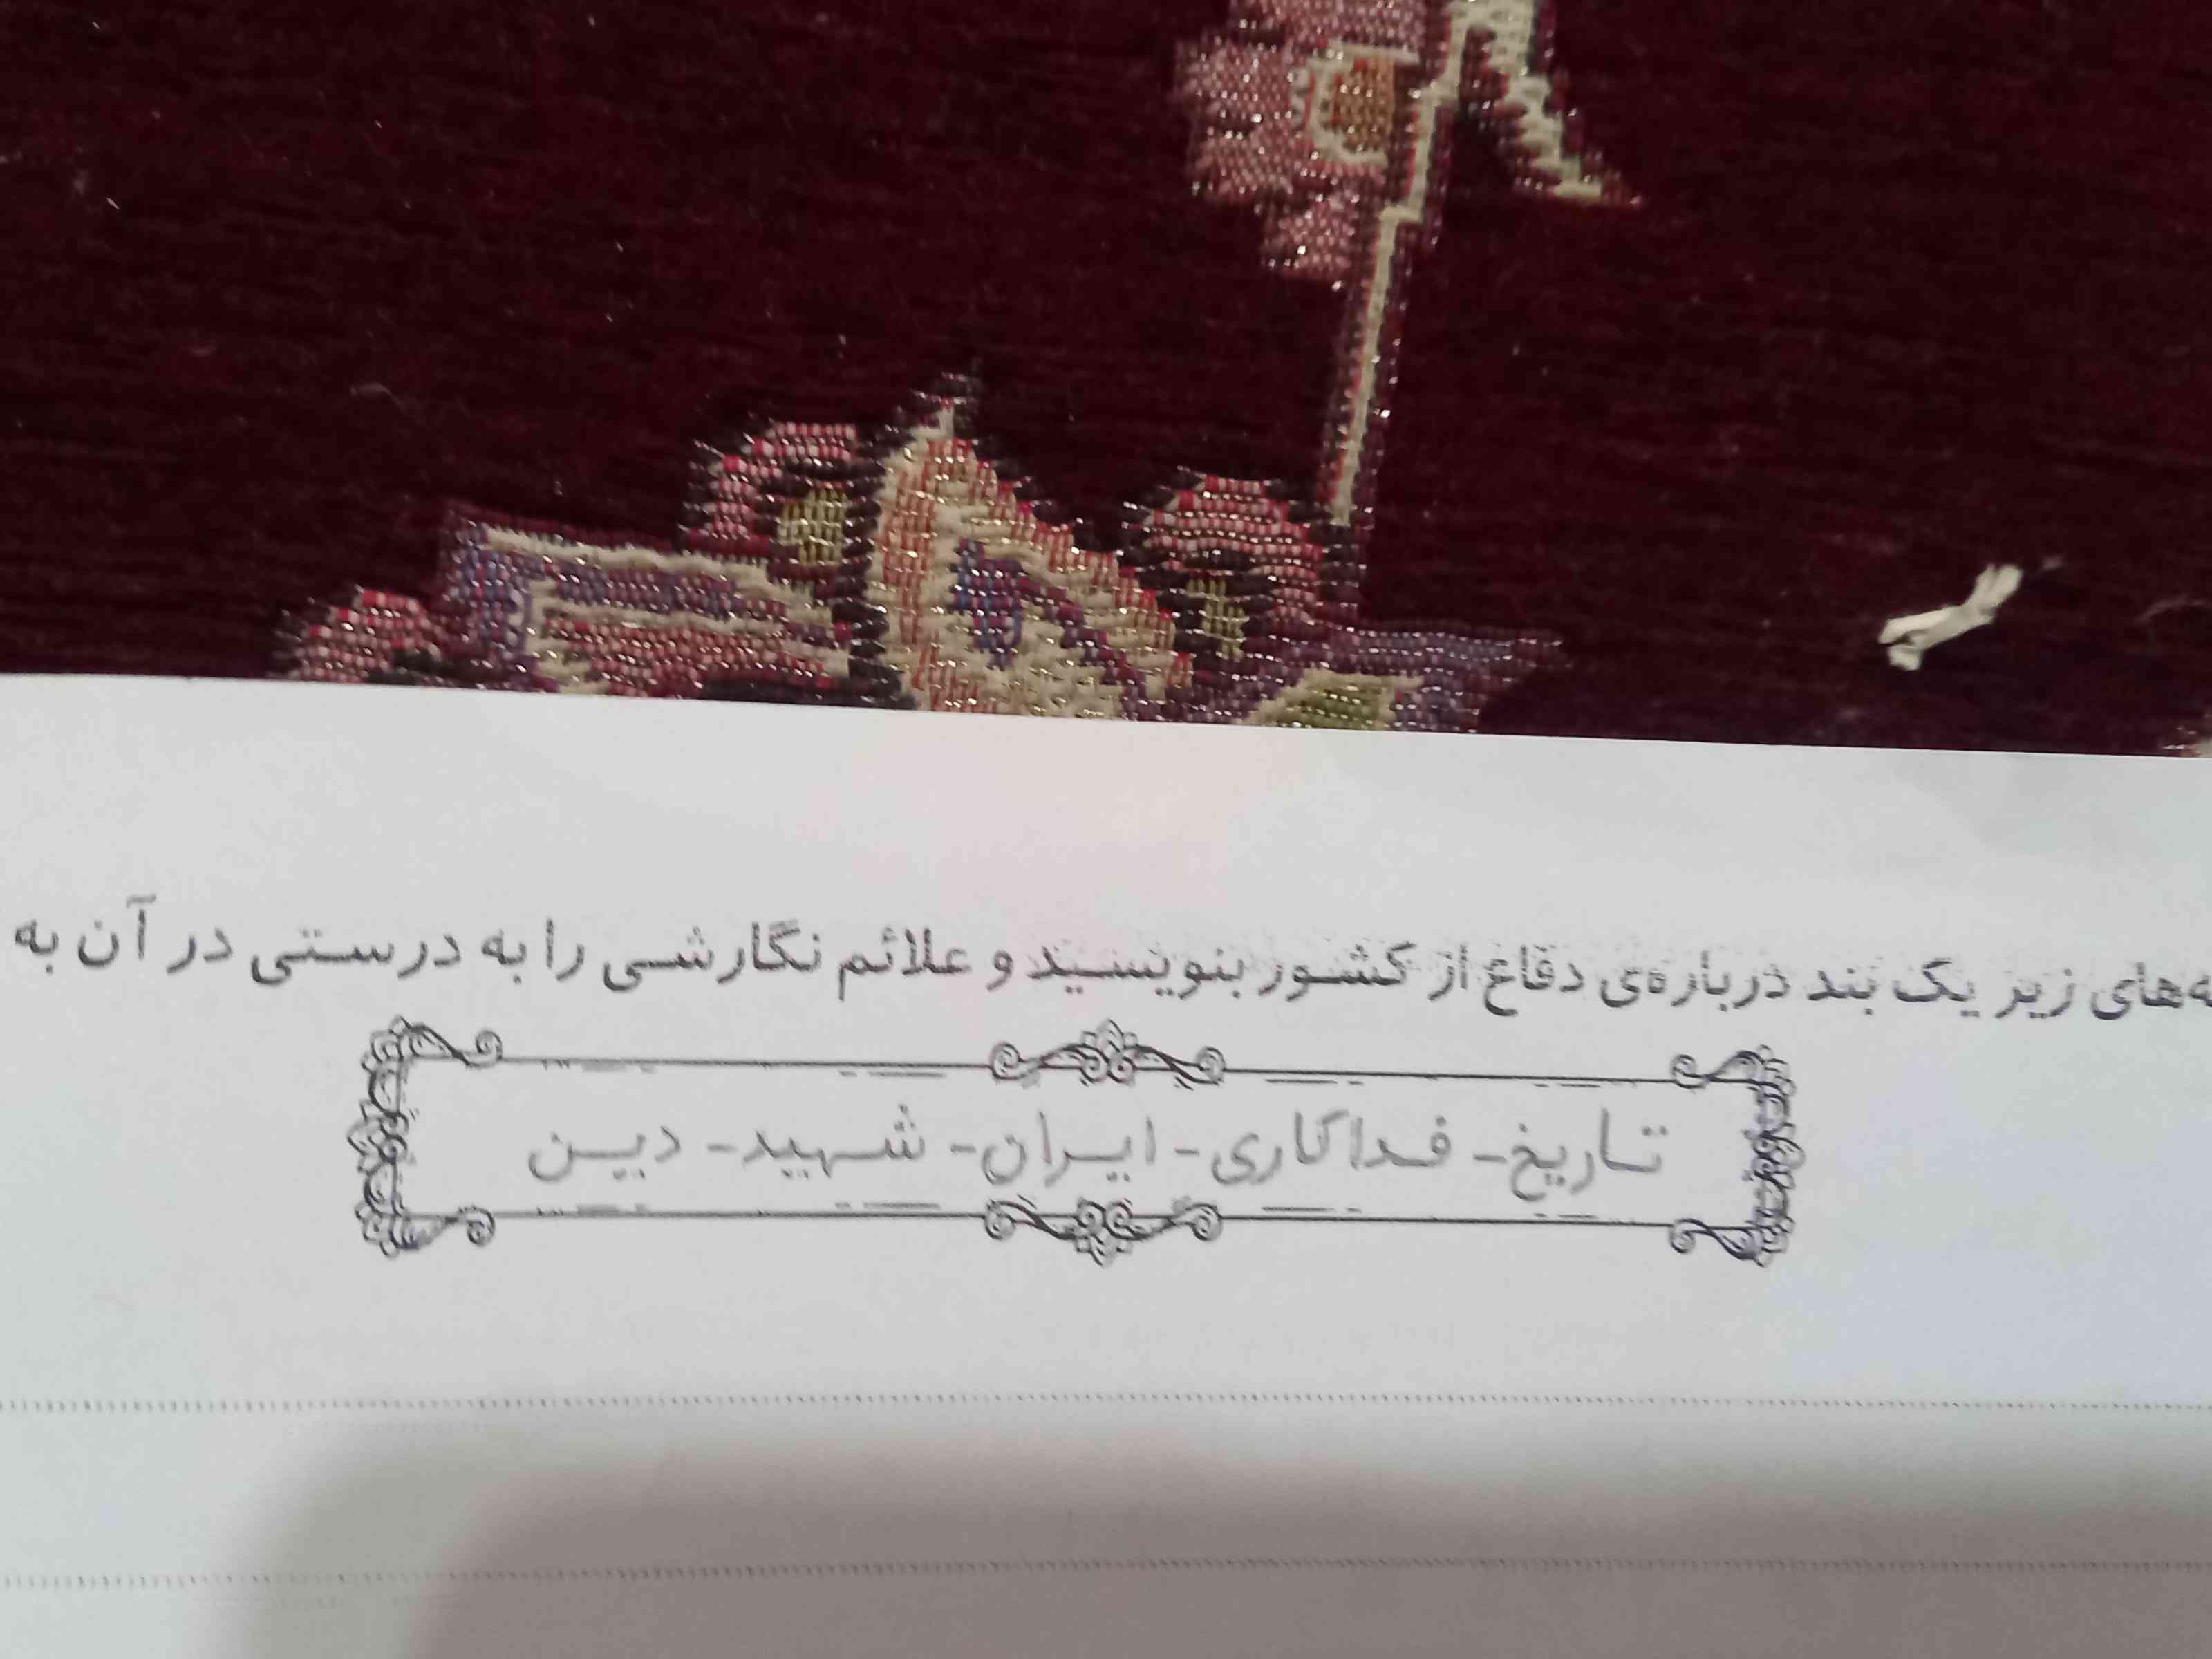 ه‌های زیر یک بند درباره‌ی دفاع از کشور بنویسید و علائم نگارشی را به درستی در آن به
تاریخ- فداکاری- ایران- شهید- دین